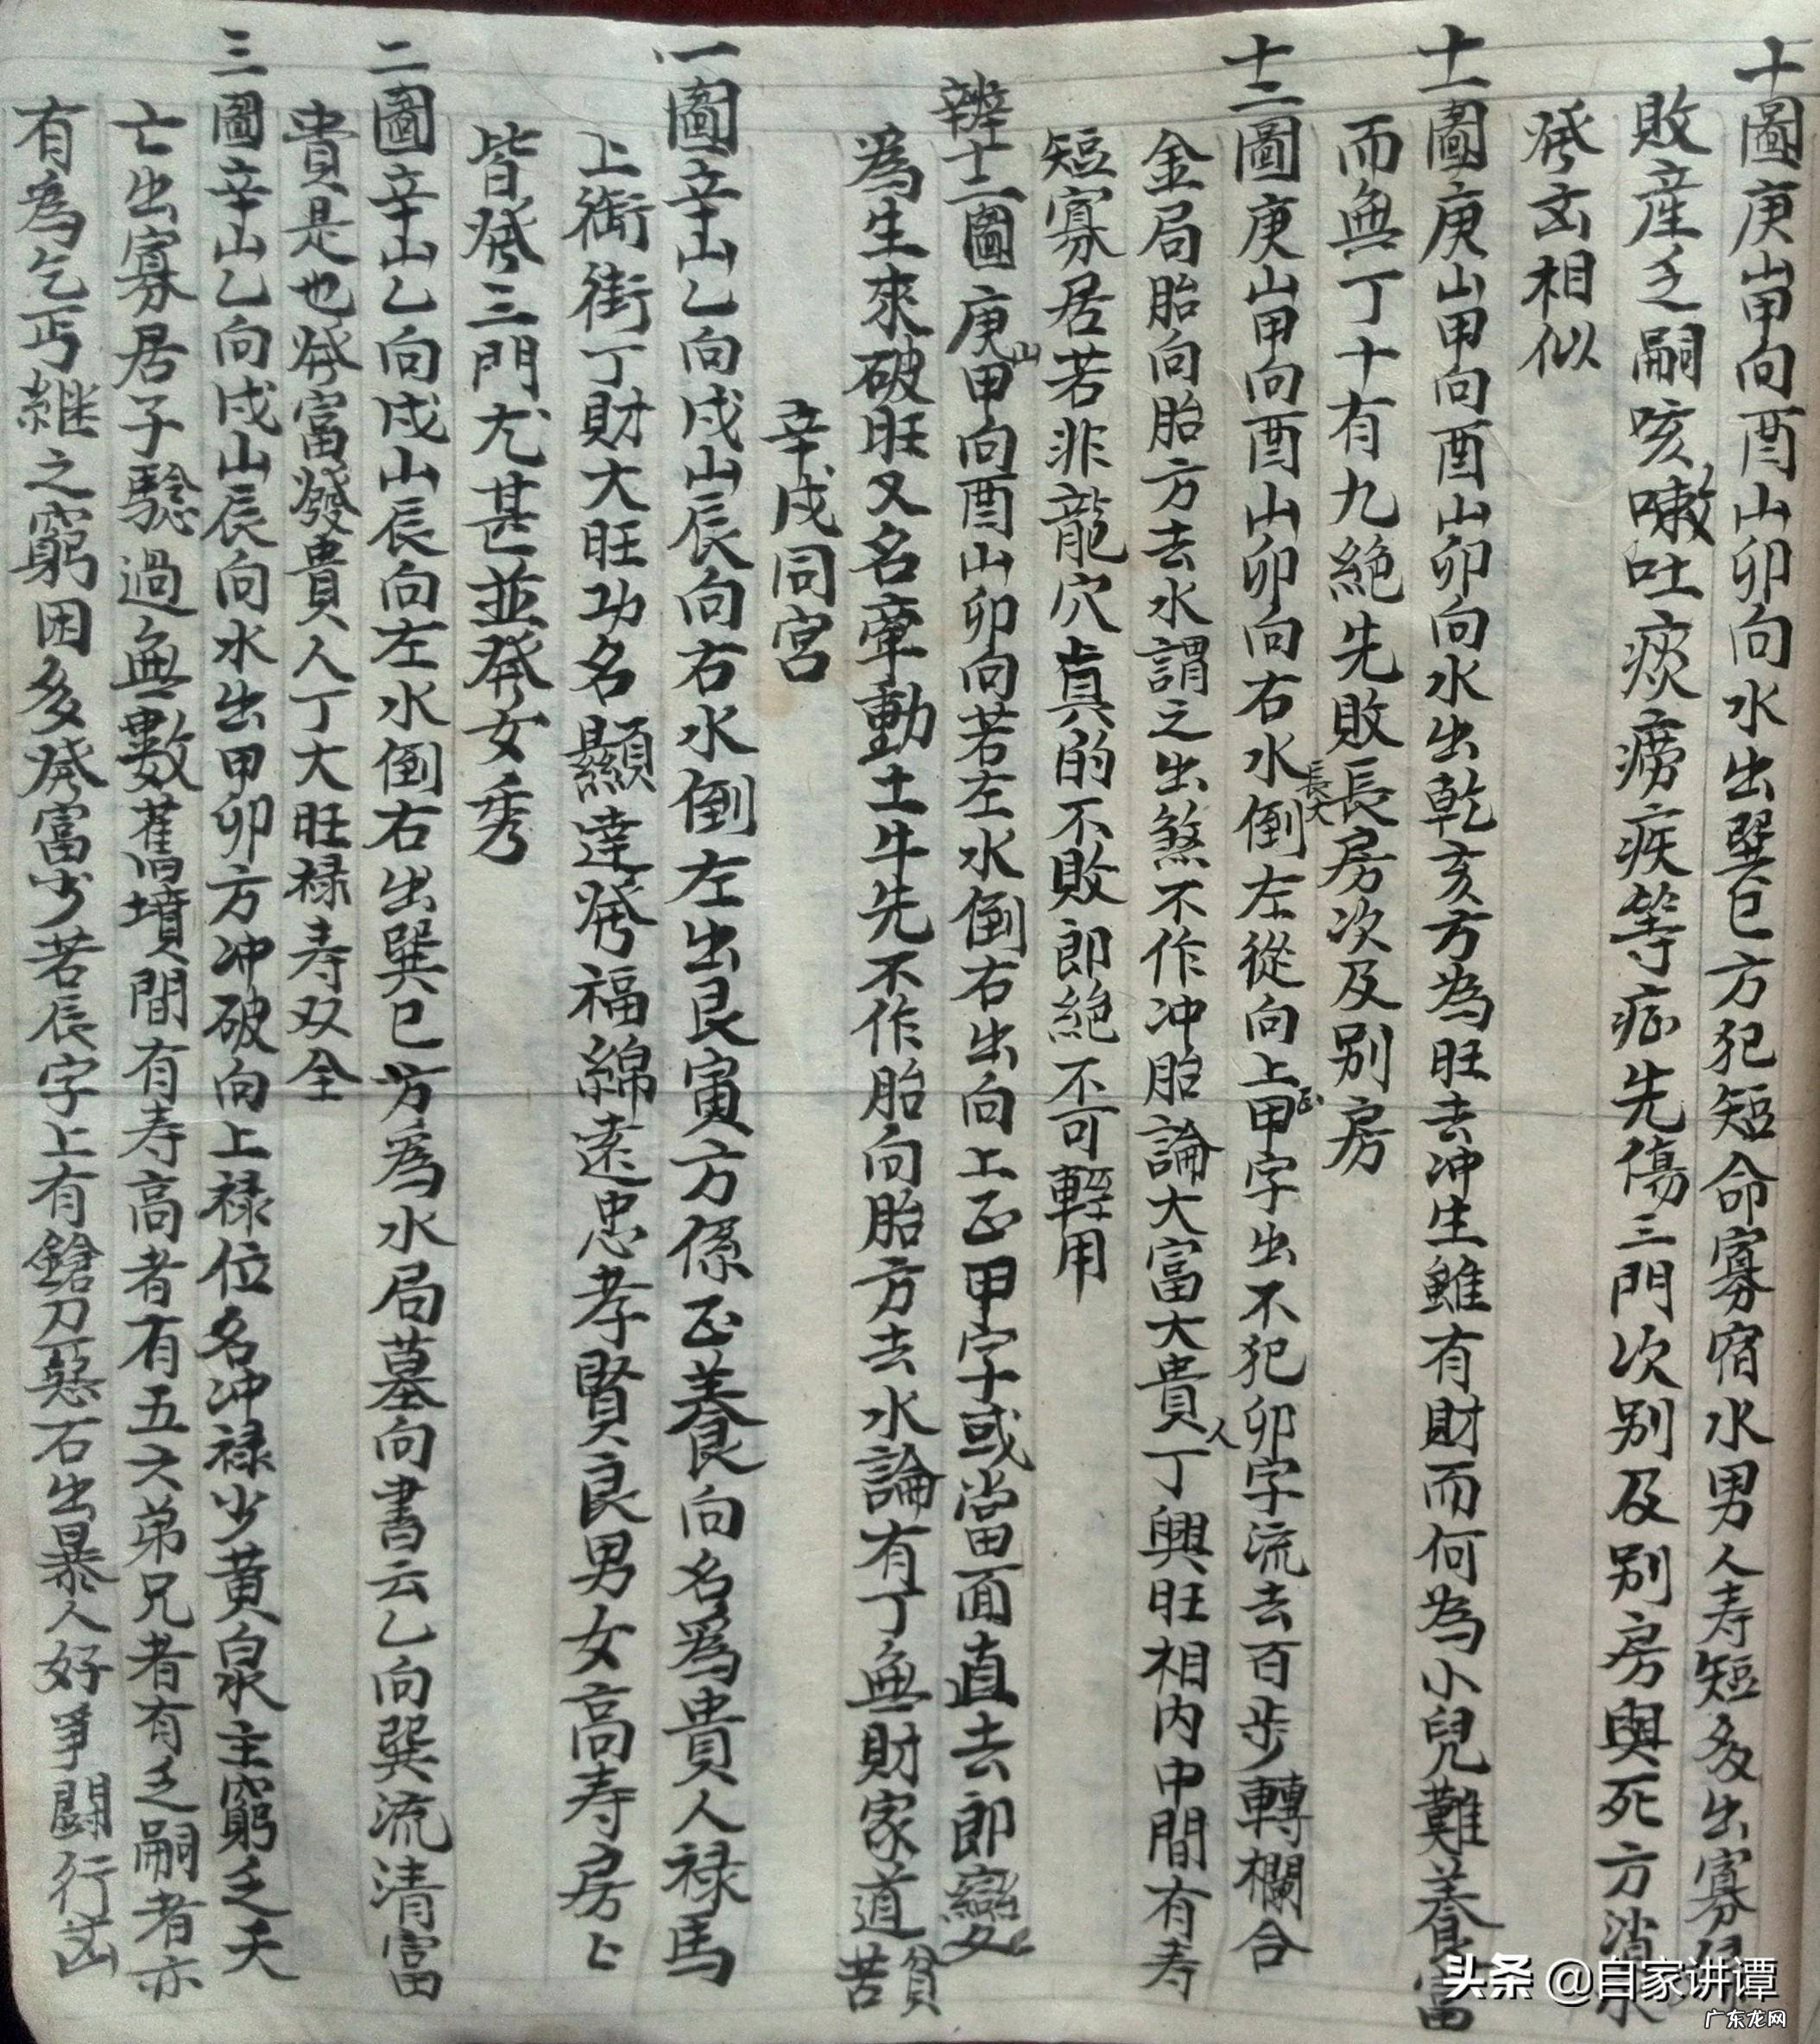 十圖庚山甲向酉山卯向水出巽巳方犯短命寡宿水男人寿短多出寡婦
敗産乏嗣咳嗽吐痰癆疾等症先傷三門次别及别房與死方消水
發凶相似
十一圖庚山甲向酉山卯向水出乾亥方為旺去冲生雖有財而何為小兒難養富
而無丁十有九絕先敗長房次及别房
十二圖庚山甲向酉山卯向右水倒左從向上正甲字出不犯卯字流去百步轉欄合
金局胎向胎方去水謂之出煞不作冲胎論大富大貴人丁興旺相内中間有寿
短寡居若非龍穴真的不敗即絕不可輕用
辨十二圖庚山甲向酉山卯向若左水倒右出向上正甲字或當面直去即變
為生來破旺又名牽動土牛先不作胎向胎方去水論有丁無財家道貧苦
辛戌同宮
一圖辛山乙向戌山辰向右水倒左出艮寅方係正養向名爲貴人禄馬
上衙街丁財大旺功名顯達發福綿遠忠孝賢良男女高寿房上
皆發三門尤甚並發女秀
二圖辛山乙向戌山辰向左水倒右出巽巳方爲水局墓向書云乙向巽流清富
貴是也發富發貴人丁大旺禄寿双全
三圖辛山乙向戌山辰向水出甲卯方冲破向上禄位名冲禄少黄泉主窮乏夭
亡出寡居子騐過無數舊墳間有寿高者有五六弟兄者有乏嗣者亦
有為乞丐継之窮困多發富少若辰字上有鎗刀惡石出暴人好爭鬭行凶
头条 @自家讲谭
广东龙网